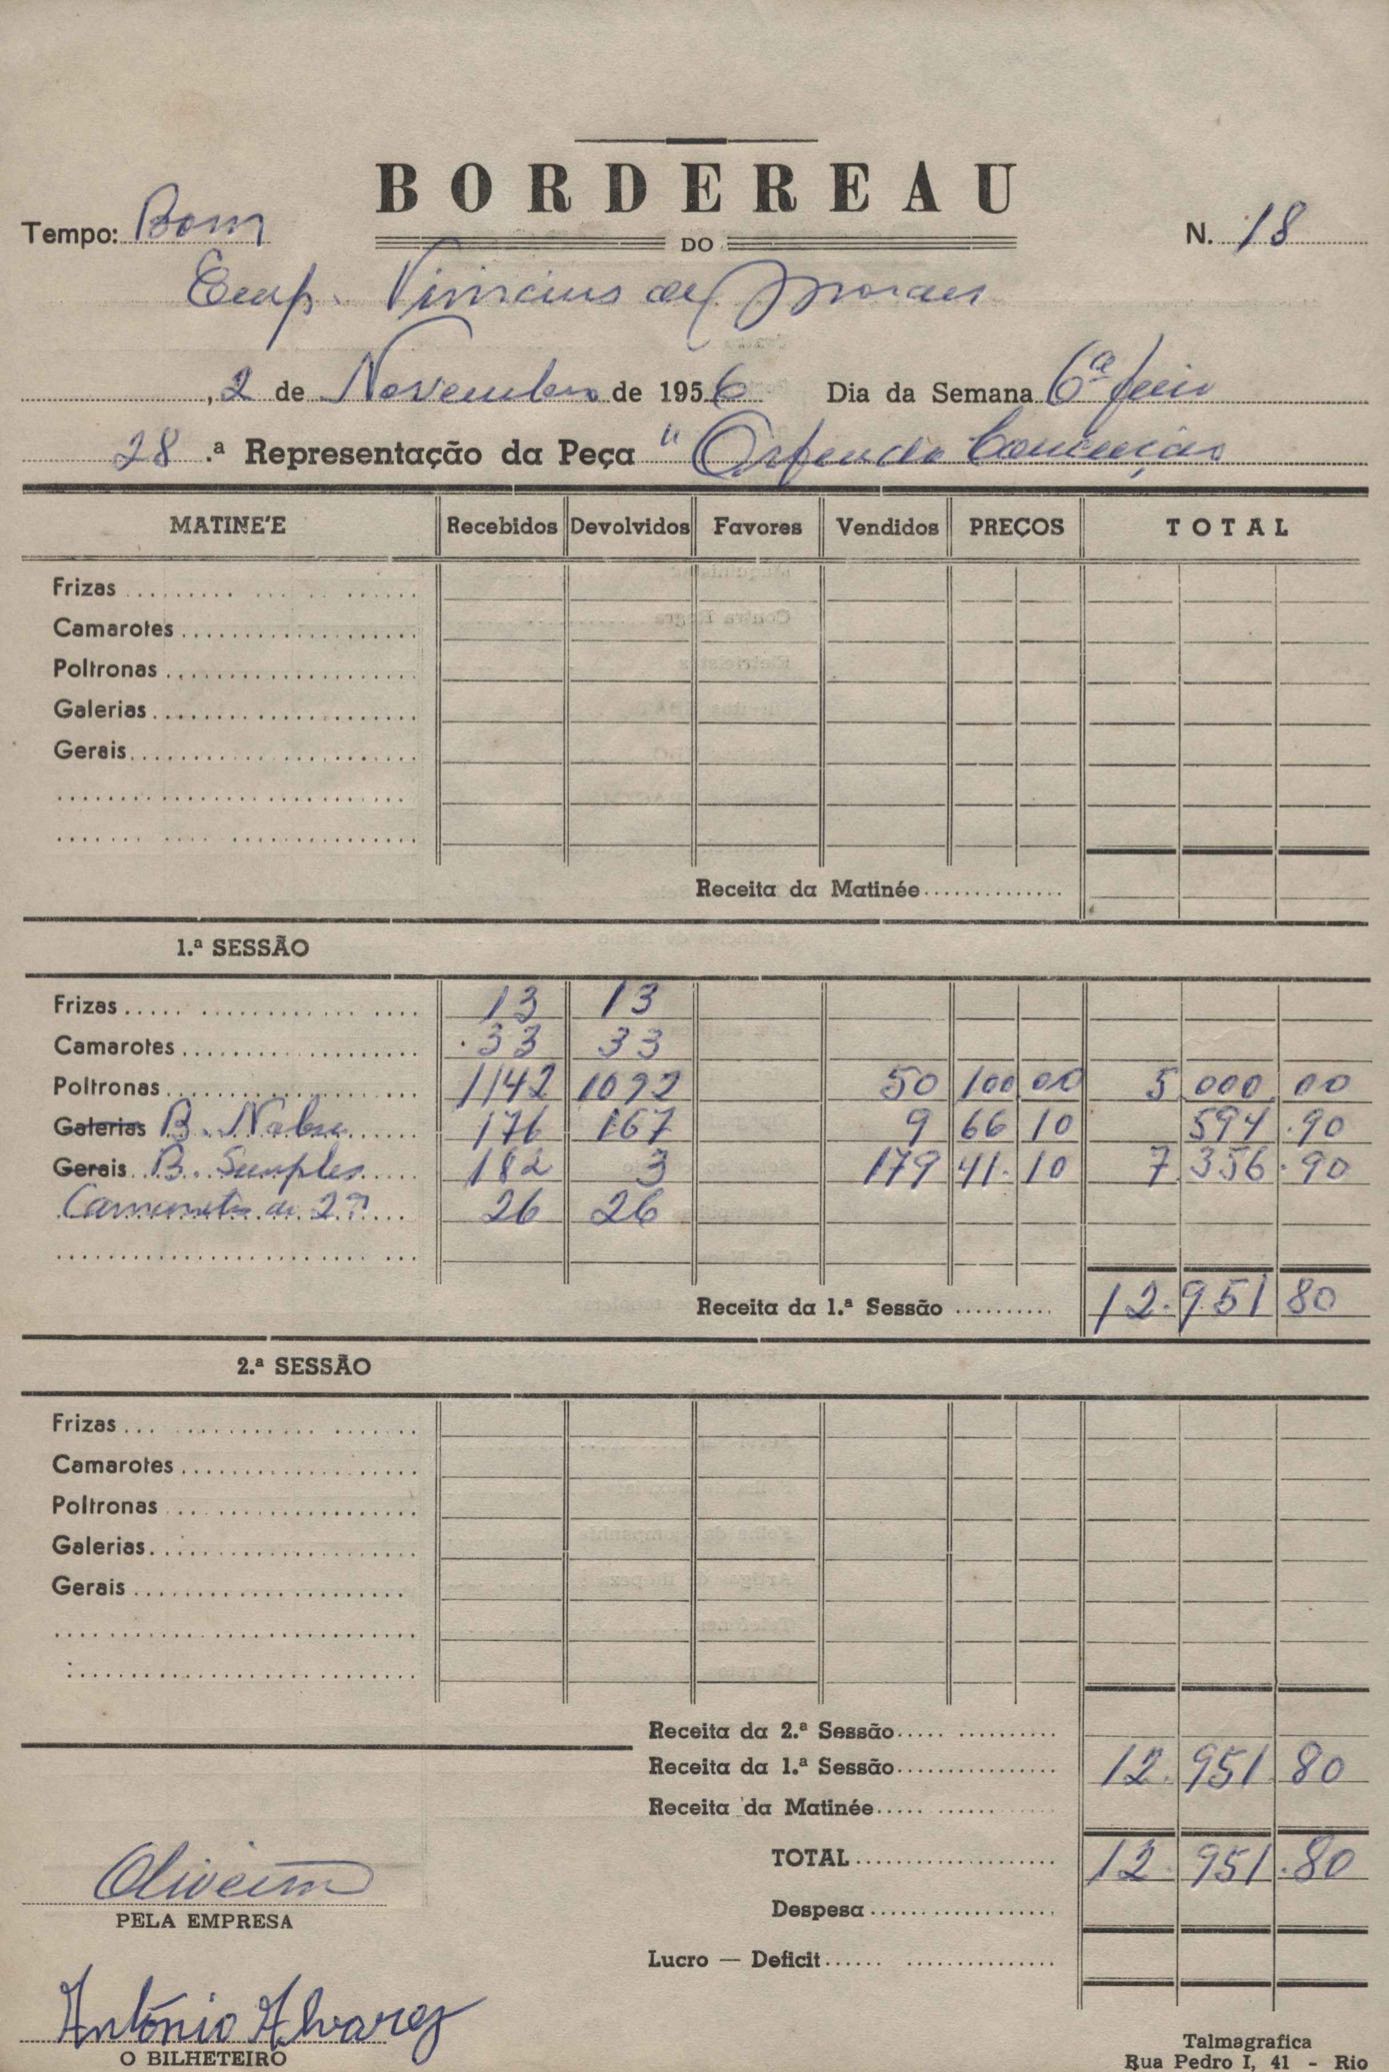 BORDEREAU
Tempo: Bom
DO
N. 18
Emp. Vinicius de Moraes
, 2 de Novembro de 1956 Dia da Semana 6ª feira
28.ª Representação da Peça "Orfeu da Conceição
MATINE'E Recebidos Devolvidos Favores Vendidos PREÇOS TOTAL
Frizas
Camarotes
Poltronas
Galerias
Gerais
Receita da Matinée
1.ª SESSÃO
Frizas 13 13
Camarotes 33 33
Poltronas 1142 1092 50 100 00 5.000.00
Galerias B. Nobre 176 167 9 66 10 594.90
Gerais B. Simples 182 3 179 41.10 7.356.90
Camarotes de 2ª 26 26
Receita da 1.ª Sessão 12.951 80
2.ª SESSÃO
Frizas
Camarotes
Poltronas
Galerias
Gerais
Receita da 2.ª Sessão
Receita da 1.ª Sessão 12.951.80
Receita da Matinée
TOTAL 12.951.80
Despesa
Lucro — Deficit
Oliveira
PELA EMPRESA
António Alvarez
O BILHETEIRO
Talmagrafica
Rua Pedro I, 41 - Rio